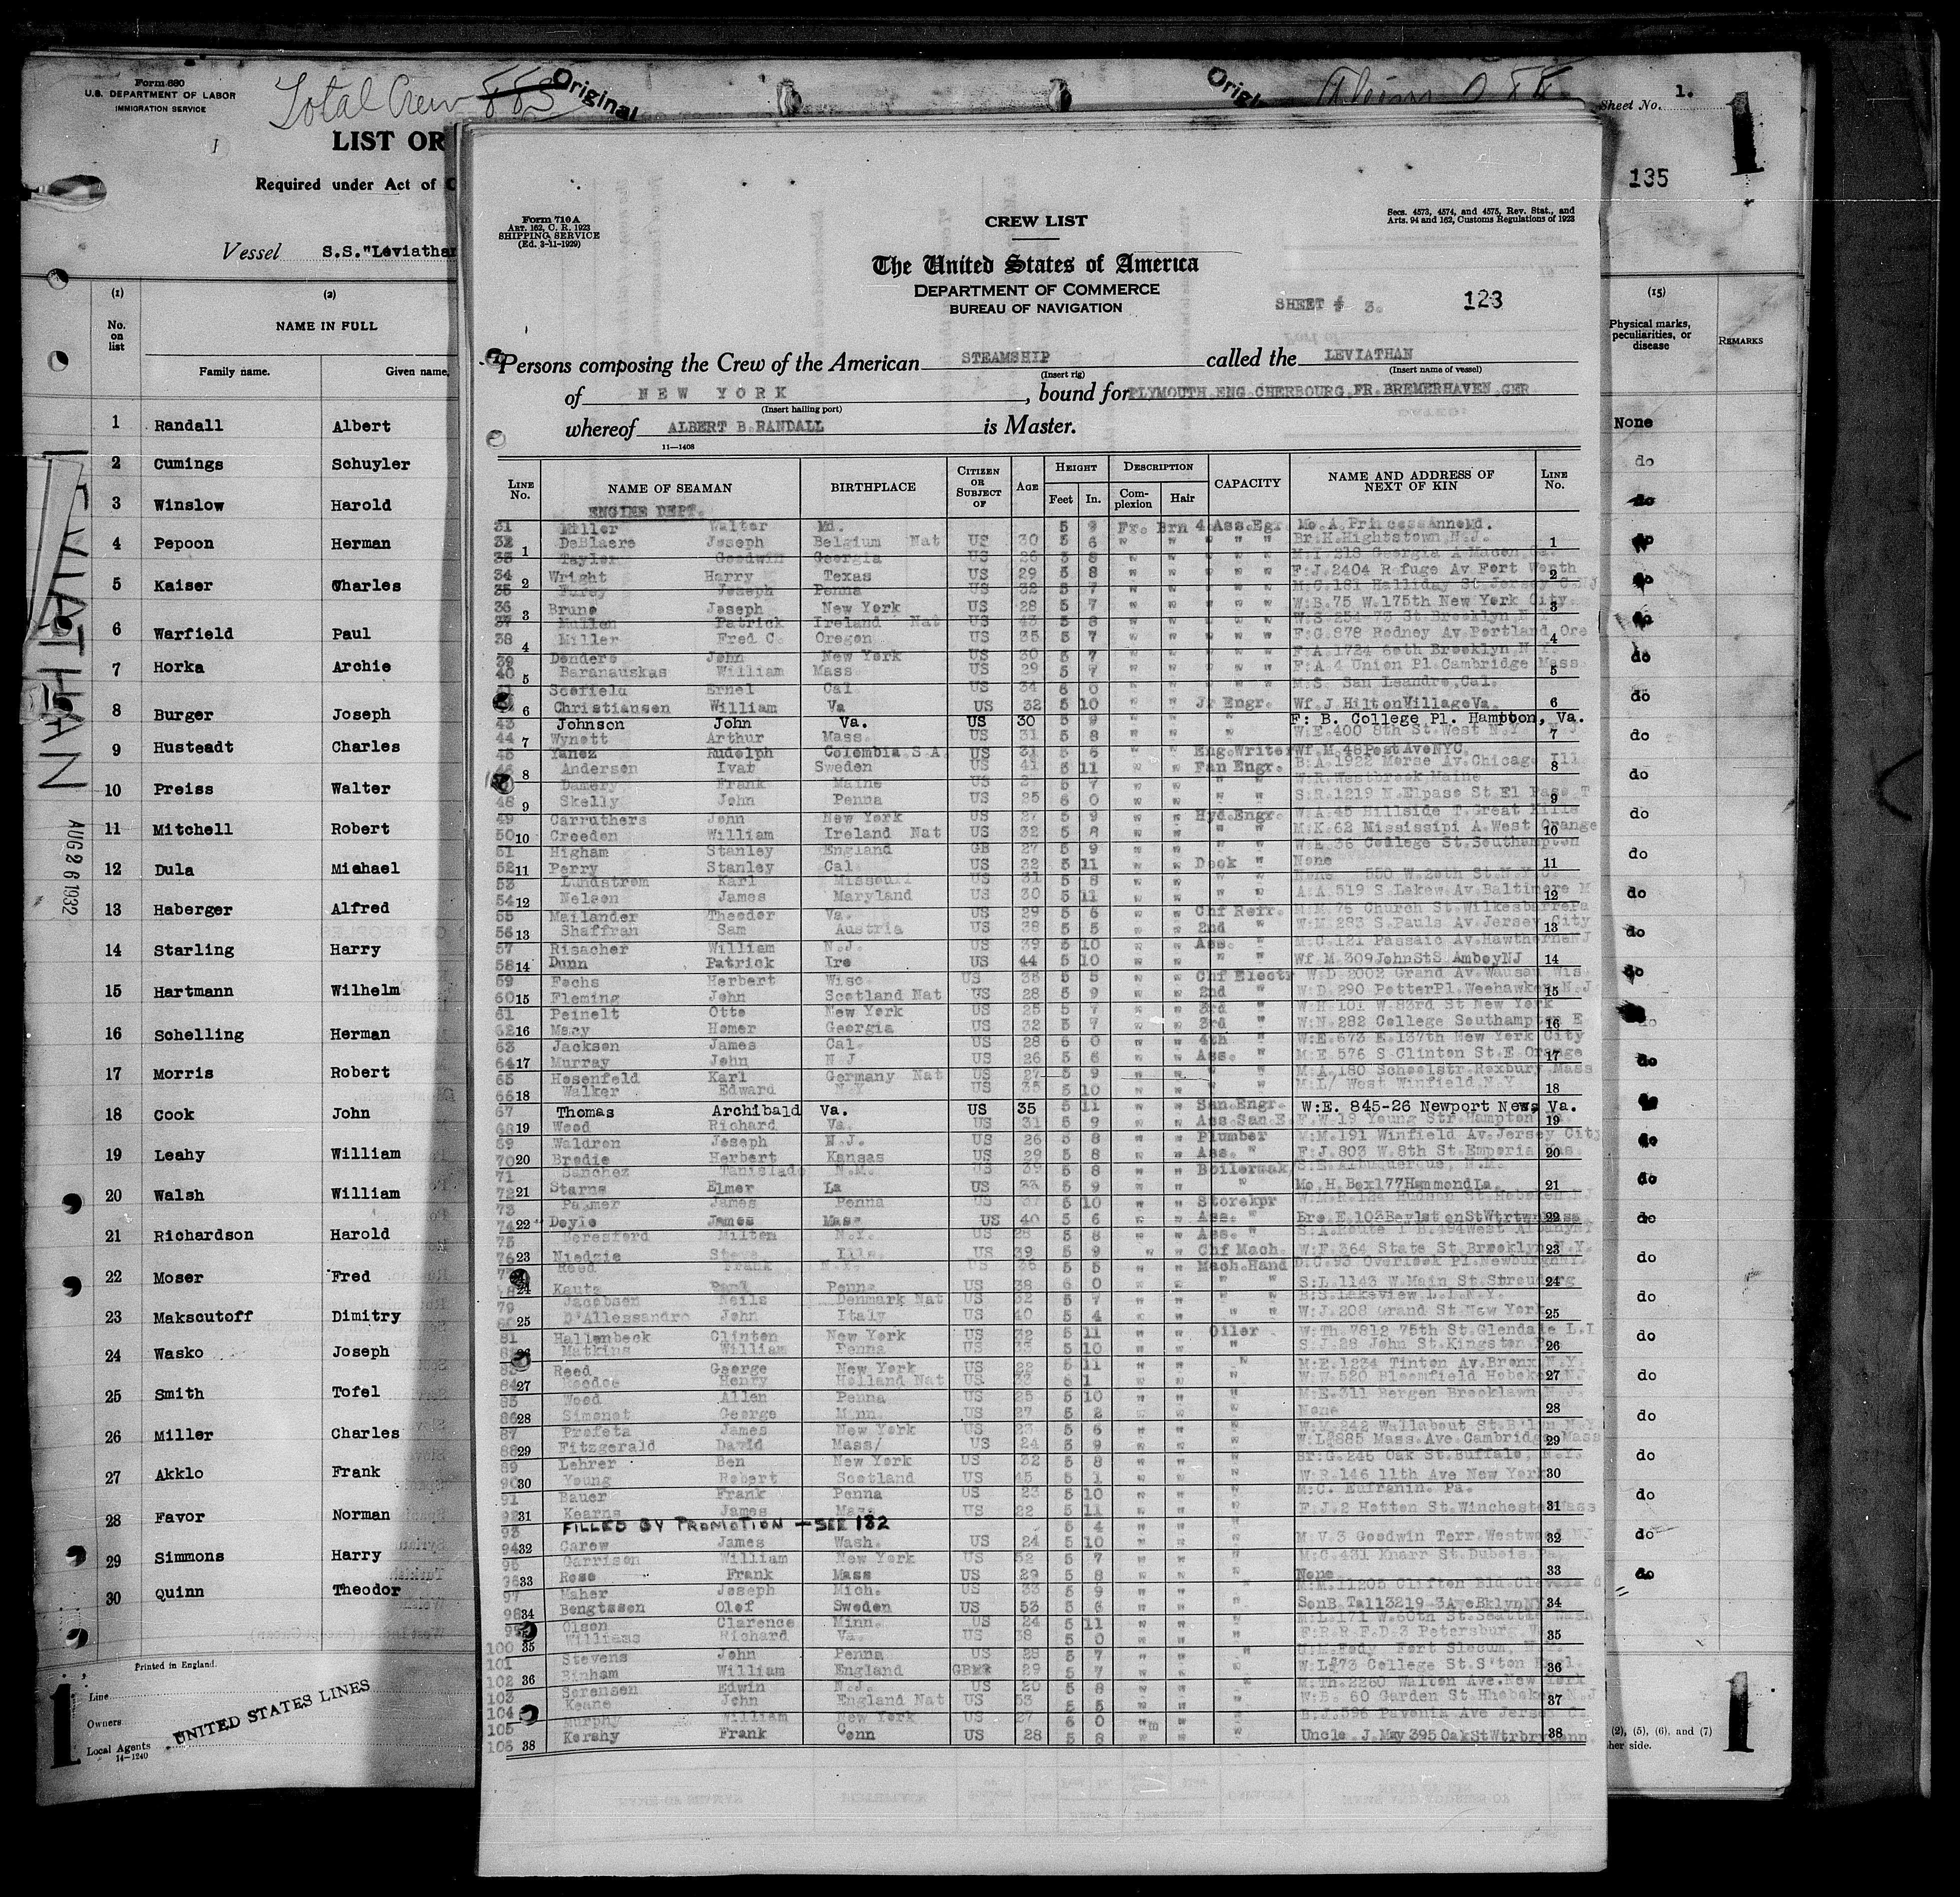 Form 680
U.S. DEPARTMENT OF LABOR
IMMIGRATION SERVICE
Total Crew 885
Original
Sheet No. 1.
1
LIST OR
Required under Act of
135
Vessel S.S."Leviathan
(1) (2) (15)
No. on list
NAME IN FULL
Family name. Given name.
Physical marks, peculiarities, or disease
REMARKS
1 Randall Albert None
2 Cumings Schuyler do
3 Winslow Harold do
4 Pepoon Herman do
5 Kaiser Charles do
6 Warfield Paul do
7 Horka Archie do
8 Burger Joseph do
9 Husteadt Charles do
10 Preiss Walter do
11 Mitchell Robert do
12 Dula Michael do
13 Haberger Alfred do
14 Starling Harry do
15 Hartmann Wilhelm do
16 Schelling Herman do
17 Morris Robert do
18 Cook John
19 Leahy William do
20 Walsh William do
21 Richardson Harold do
22 Moser Fred do
23 Makscutoff Dimitry do
24 Wasko Joseph do
25 Smith Tofel do
26 Miller Charles do
27 Akklo Frank do
28 Favor Norman do
29 Simmons Harry do
30 Quinn Theodor do
LEVIATHAN
AUG 26 1932
Printed in England.
1
Line
Owners
Local Agents
14-1240
UNITED STATES LINES
(2), (5), (6), and (7)
her side.
1
Form 710 A
ART. 162, C. R. 1923
SHIPPING SERVICE
(Ed. 3-11-1929)
CREW LIST
Secs. 4573, 4574, and 4575, Rev. Stat., and
Arts. 94 and 162, Customs Regulations of 1923
The United States of America
DEPARTMENT OF COMMERCE
BUREAU OF NAVIGATION
SHEET # 3. 123
Persons composing the Crew of the American STEAMSHIP called the LEVIATHAN
(Insert rig) (Insert name of vessel)
of NEW YORK, bound for PLYMOUTH ENG CHERBOURG FR. BREMERHAVEN GER
(Insert hailing port)
whereof ALBERT B. RANDALL is Master.
11—1408
LINE No. NAME OF SEAMAN BIRTHPLACE CITIZEN OR SUBJECT OF AGE HEIGHT Feet In. DESCRIPTION Complexion Hair CAPACITY NAME AND ADDRESS OF NEXT OF KIN LINE No.
ENGINE DEPT.
31 Miller Walter Md. 5 9 Fr. Brn 4 Ass.Egr Mo.A.PrincessAnneMd.
32 DeBlaere Joseph Belgium Nat US 30 5 6 " " " " " Br.K.Hightstown,N.J.
33 Tayler Goodwin Georgia US 26 5 8 " " " " "
34 Wright Harry Texas US 29 5 8 " " " " " F.J.2404 R fuge Av Fort Worth
35 Furey Joseph Penna US 32 5 7 " " " " "
36 Brune Joseph New York US 28 5 7 " " " " " W:B.75 W.175th New York City
37 Mullen Patrick Ireland Nat US 43 5 8 " " " " "
38 Miller Fred C. Oregon US 35 5 7 " " " " " F:G.878 Rodney Av Portland Ore
39 Dendero John New York US 30 5 7 " " " " " F:A.1724 60th Brooklyn N.Y.
40 Baranauskas William Mass US 29 5 7 " " " " " F:A.4 Union Pl.Cambridge Mass
Scofield Ernel Cal US 34 6 0 " " " " " M:S. San Leandro,Cal.
Christiansen William Va US 32 5 10 " " Jr Engr. Wf.J HiltonVillageVa.
43 Johnson John Va. US 30 5 9 " " " F: B. College Pl. Hampton, Va.
44 Wynett Arthur Mass. US 31 5 8 " " " W:E.400 8th St.West N.Y.
45 Yanez Rudolph Colombia S.A. US 31 5 6 " " Eng.Writer Wf.M.48PostAveNYC.
Anderson Ivar Sweden US 41 5 11 " " Fan Engr. B:A.1922 Morse Av.Chicago Ill
Damery Frank Maine US 5 7 " " " " W:R.Westbrook Maine
48 Skelly John Penna US 25 6 0 " " " " S:R.1219 N.Elpaso St El Paso T
49 Carruthers John New York US 27 5 9 " " Hyd.Engr. W:A.45 Hillside T.Great Kills
50 Creeden William Ireland Nat US 32 5 8 " " " " M:K.62 Mississipi A.West Orange
51 Higham Stanley England GB 27 5 9 " " " " W:E.36 College St.Southampton
52 Perry Stanley Cal US 32 5 11 " " Deck " None
53 Lundstrom Karl Missouri US 31 5 8 " " " " None 550 W.20th St.N.Y.C.
54 Nelson James Maryland US 30 5 11 " " " " A:A.519 S.Lakew.Av.Baltimore M
55 Mailander Theodor Va. US 29 5 6 " " Chf Refr. M:M.76 Church St.WilkesbarrePa
56 Shaffran Sam Austria US 38 5 5 " " 2nd " W:M.283 S.Pauls Av.Jersey City
57 Risacher William N.J. US 39 5 10 " " Ass. " M:C.121 Passaic Av.HawthorneNJ
58 Dunn Patrick Ire US 44 5 10 " " " " Wf.M.309JohnStS AmboyNJ
59 Fochs Herbert Wisc. US 38 5 5 " " Chf Electr W:D.2002 Grand Av.Wausau Wis
60 Fleming John Scotland Nat US 28 5 9 " " 2nd " W:D.290 PotterPl.Weehawken N.J
61 Peinelt Otto New York US 25 5 7 " " 3rd " W:H.101 W.83rd St New York
62 Macy Homer Georgia US 32 5 7 " " 3rd " W:N.282 College Southampton E
63 Jackson James Cal. US 28 6 0 " " 4th " W:E.673 E.137th New York City
64 Murray John N J US 26 5 6 " " Ass. " M:E.576 S Clinton St.E Orange
65 Hosenfeld Karl Germany Nat US 27 5 9 " " " " M:A.180 Schoolstr.Roxbury Mass
66 Walker Edward N.Y. US 35 5 10 " " " " M:L/ West Winfield,N.Y
67 Thomas Archibald Va. US 35 5 11 " " San.Engr. W:E. 845-26 Newport News, Va.
68 Wood Richard Va. US 31 5 9 " " Ass.San.E. F.W.18 Young Str.Hampton
69 Waldron Joseph N.J. US 26 5 8 " " Plumber M:M.191 Winfield Av.Jersey City
70 Brodie Herbert Kansas US 29 5 8 " " Ass. " F:J.803 W.8th St.Emporia Kas.
71 Sanchez Tanislado N.M. US 39 5 8 " " Boilermak S:E.Albuquerque, N.M.
72 Starns Elmer La US 33 5 9 " " " Mo.H.Box177HammondLa.
73 Palmer James Penna US 37 5 10 " " Storekpr W:M.R.124 Hudson St.Hoboken NJ
74 Doyle James Mass US 40 5 6 " " Ass. "
75 Beresford Milton N.Y. US 28 5 8 " " Ass. "
76 Niedzie Steve Ills. US 39 5 9 " " Chf Mach. W:F.364 State St Brooklyn N.Y.
Reed Frank N.Y. US 36 5 5 " " Mach.Hand D:C.93 Overlook Pl.Newburgh N.Y.
Kautz Paul Penna US 38 6 0 " " " " S:L.1143 W.Main St.Stroudsrg
79 Jacobsen Neils Denmark Nat US 32 5 7 " " " " B:S.Lakeview L.I.N.Y.
80 D'Allessandro John Italy US 40 5 4 " " " " W:J.208 Grand St.New York
81 Hallenbeck Clinton New York US 32 5 11 " " Oiler W:Th.7812 75th St.Glendale L.I
Matkins William Penna US 33 5 10 " " " S:J.28 John St.Kingston
83 Reed George New York US 22 5 11 " " " M:E.1234 Tinton Av.Bronx N.Y.
84 Henry Holland Nat US 33 6 1 " " " W:W.520 Bloomfield Hoboken NJ
85 Wood Allen Penna US 25 5 10 " " " M:E.311 Bergen Brooklawn N.J.
86 Simonet George Minn. US 27 5 2 " " " None
87 Profeta James New York US 23 5 6 " " " W:V.242 Wallabout St.B'lyn N.Y
88 Fitzgerald David Mass/ US 24 5 9 " " " W:L.885 Mass.Ave.Cambridge Mass
89 Lehrer Ben New York US 32 5 8 " " " Br:G.245 Oak St.Buffalo, N.Y.
90 Young Robert Scotland US 45 5 1 " " " W:R.146 11th Ave New York
91 Bauer Frank Penna US 23 5 10 " " " M:C. Eufranin. Pa.
92 Kearns James Mass US 22 5 11 " " " F.J.2 Hotten St.Winchester Mass
93 FILLED BY PROMOTION — SEE 182 5 4
94 Carew James Wash. US 24 5 10 " " " M:V.3 Goodwin Terr Westwood NJ
95 Garrison William New York US 52 5 7 " " " M:C.431 Knarr St.Dubois
96 Rose Frank Mass US 29 5 8 " " " None
97 Maher Joseph Mich. US 33 5 9 " " " M:M.11205 Clifton Bld.Cleveland
98 Bengtssen Olof Sweden US 53 5 6 " " " SonB.Tall3219-3AveBklynNY
99 Olson Clarence Minn. US 24 5 11 " " " M:L.171 W.60th St.Seattle Wash
100 Williams Richard Va. US 38 5 0 " " " F:R.R.F.D.3 Petersburg
101 Stevens John Penna US 28 5 7 " " " Fort Slocum,
102 Binham William England GB 29 5 7 " " " W:L.73 College St.S'ton Engl.
103 Sorensen Edwin N.J. US 20 5 8 " " " M:Th.2260 Walton Ave.New York
104 Keane John England Nat US 53 5 5 " " " W:B. 60 Garden St.Hhoboken N.J
105 Murphy William New York US 27 6 0 " " " B:J.596 Pavonia Ave Jersey C.
106 Kershy Frank Conn US 28 5 8 " " " Uncle.J.May395OakStWtrbryConn.